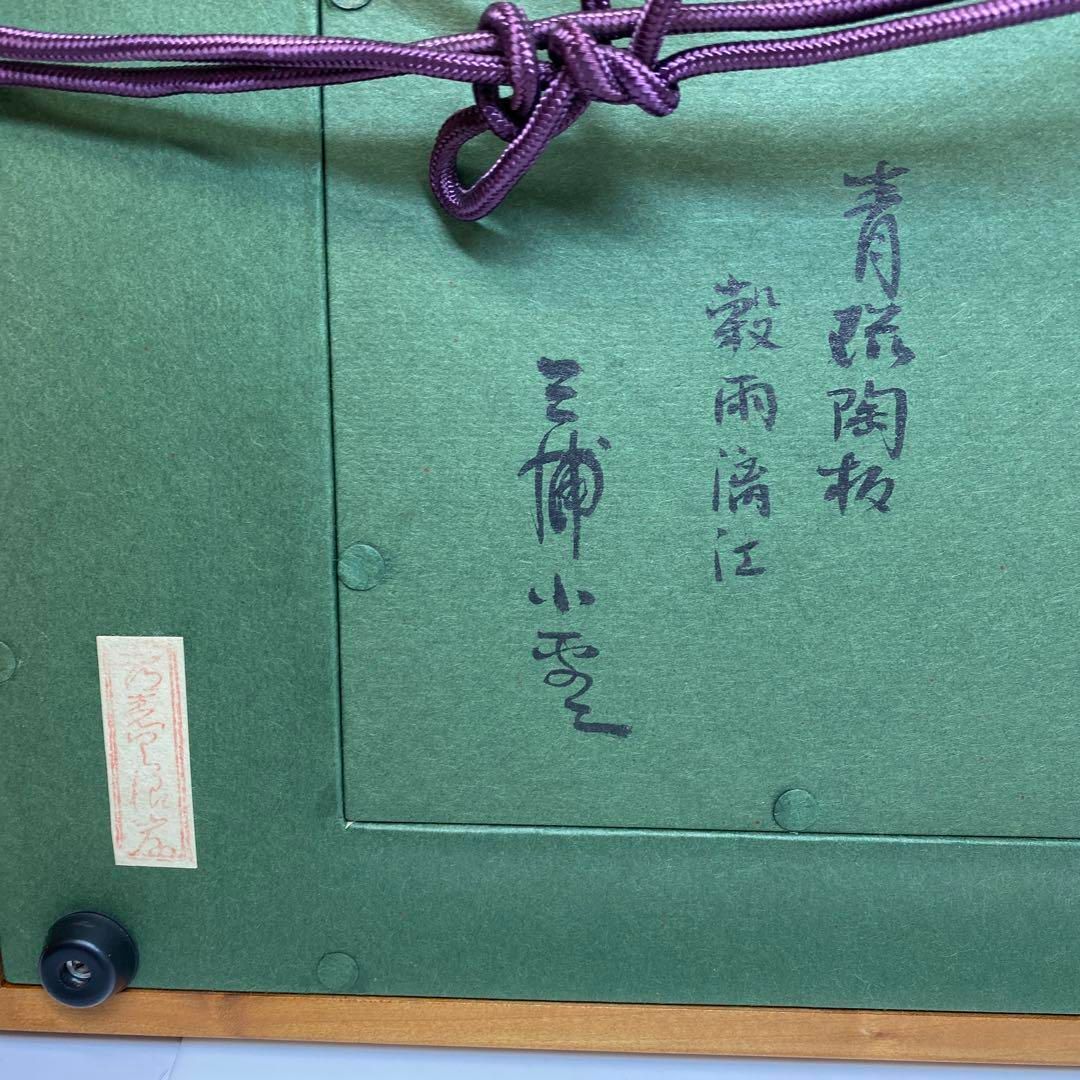 青瓷陶板
穀雨漓江
三浦小平二